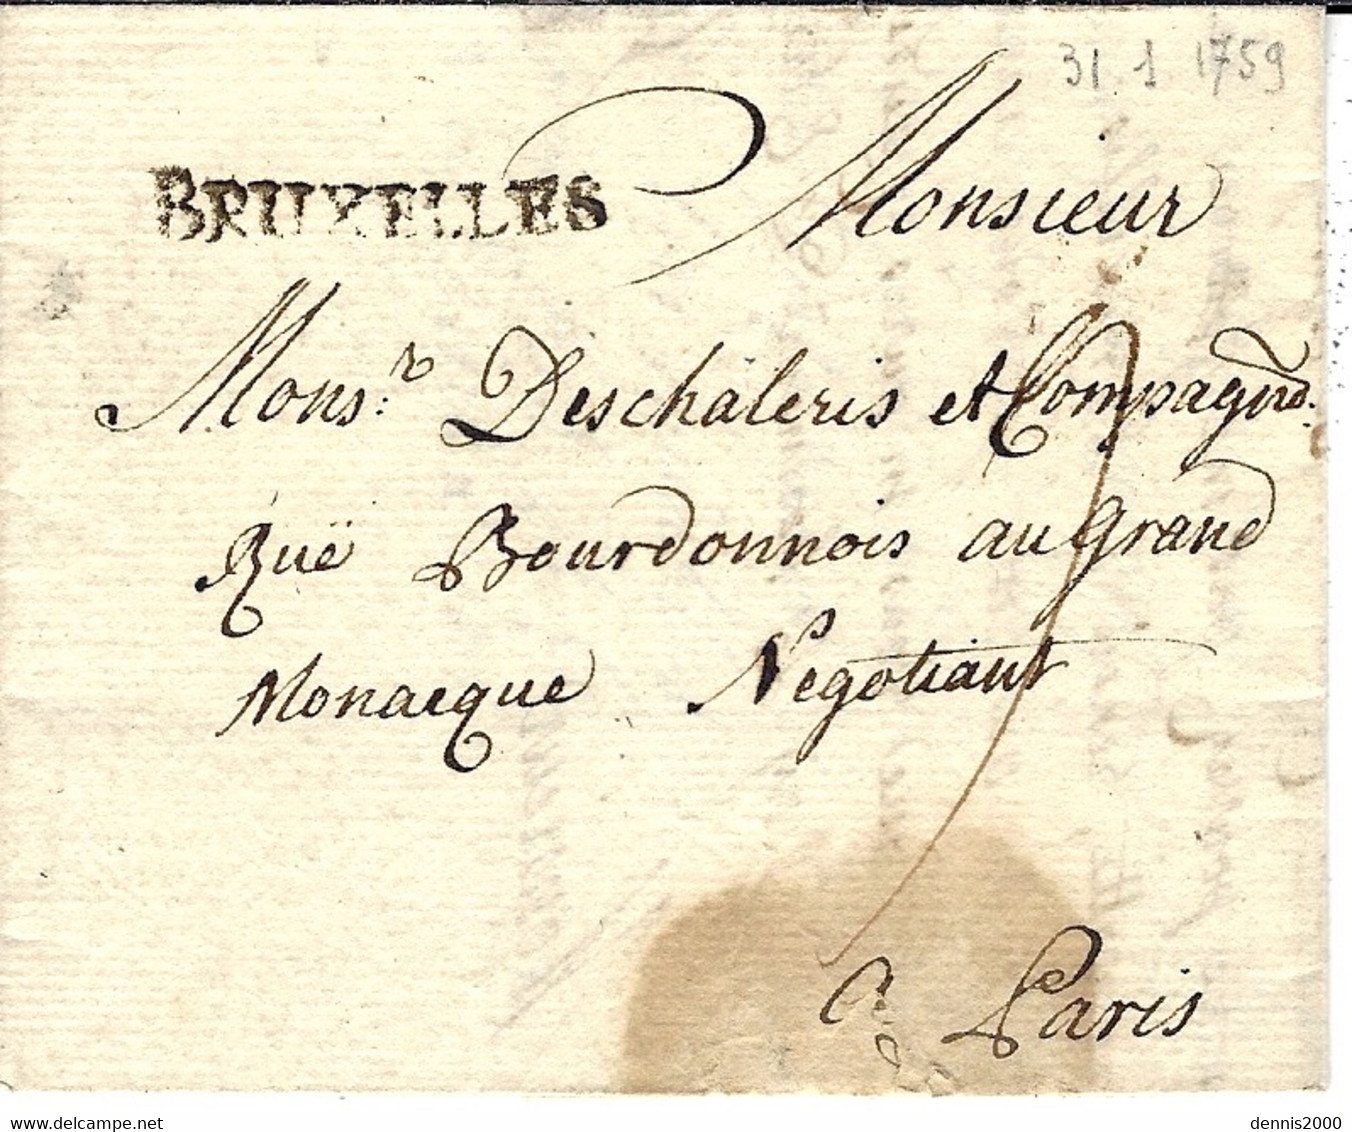 31 1 1759
BRUXELLES
Monsieur
Mons:r Deschäleris et Compagnie.
Ruë Bourdonnois au grand
Monacque Negotiant
a Paris
delcampe.net
dennis2000